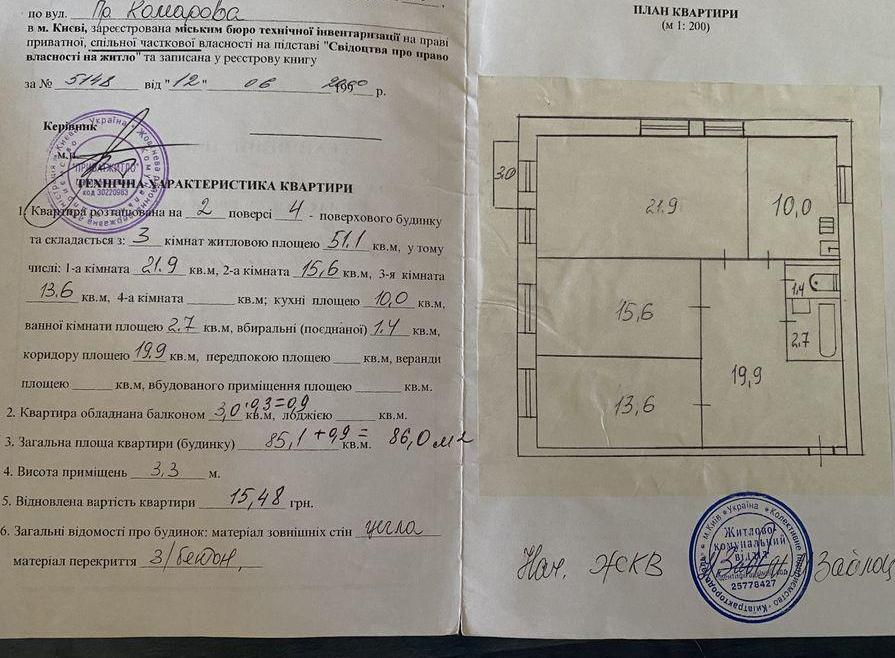 по вул. Пр. Комарова
в м. Києві, зареєстрована міським бюро технічної інвентаризації на праві
приватної, спільної часткової власності на підставі "Свідоцтва про право
власності на житло" та записана у реєстрову книгу
за № 5148 від "12" 06 2000 р.
Керівник
м.п.
"ПРИВАТЖИТЛО"
код 30220983
ТЕХНІЧНА ХАРАКТЕРИСТИКА КВАРТИРИ
1. Квартира розташована на 2 поверсі 4 - поверхового будинку
та складається з: 3 кімнат житловою площею 51.1 кв.м, у тому
числі: 1-а кімната 21.9 кв.м, 2-а кімната 15,6 кв.м, 3-я кімната
13.6 кв.м, 4-а кімната кв.м; кухні площею 10,0 кв.м,
ванної кімнати площею 2.7 кв.м, вбиральні (поєднаної) 1.4 кв.м,
коридору площею 19.9 кв.м, передпокою площею кв.м, веранди
площею кв.м, вбудованого приміщення площею кв.м.
2. Квартира обладнана балконом 3,0·0,3=0,9 кв.м, лоджією кв.м.
3. Загальна площа квартири (будинку) 85,1+0,9= кв.м. 86,0 м2
4. Висота приміщень 3,3 м.
5. Відновлена вартість квартири 15,48 грн.
6. Загальні відомості про будинок: матеріал зовнішніх стін цегла
матеріал перекриття З/бетон,
ПЛАН КВАРТИРИ
(м 1: 200)
3.0
21.9
10,0
1.4
15,6
2.7
19,9
13,6
Нач. ЖКВ
Україна
м.Київ
Житлово
комунальний
відділ
25778427